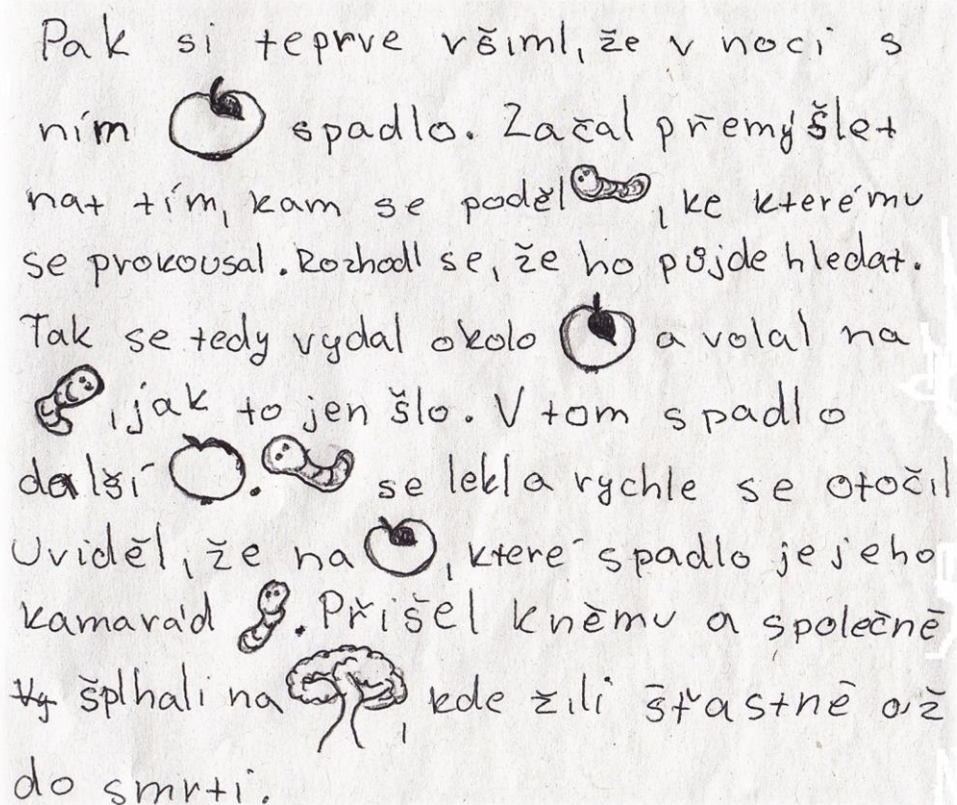 Pak si teprve všiml, že v noci s
ním spadlo. Začal přemýšlet
nat tím, kam se poděl , ke kterému
se prokousal. Rozhodl se, že ho půjde hledat.
Tak se tedy vydal okolo a volal na
, jak to jen šlo. V tom spadlo
další . se lekl a rychle se otočil
Uviděl, že na , které spadlo je jeho
kamarád . Přišel k němu a společně
vy šplhali na , kde žili šťastně až
do smrti.